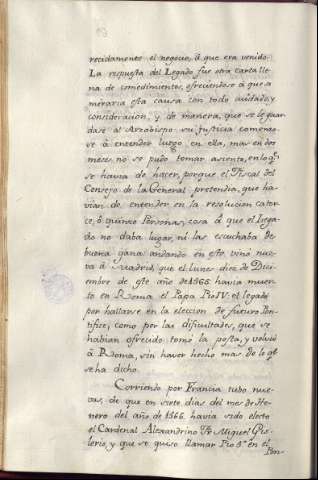 recidamente el negocio, á que era venido.
La respuesta del Legado fue otra carta lle-
na de comedimientos, ofreciendose á que a
miraria esta causa con todo cuidado, y
consideracion, y de manera, que se le guar-
dase al Arzobispo su justicia comenzo-
se à entender luego en ella, mas en dos
meses no se pudo tomar asiento, en lo qe.
se havia de hacer, porque el Fiscal del
Consejo de la General pretendia, que ha-
vian de entender en la resolucion cator-
ce, ò quince Personas, cosa á que el Lega-
do no daba lugar, ni las escuchaba de
buena gana: andando en esto vino nue-
va à Madrid, que el lunes diez de Dici-
embre de este año de 1565. havia muer-
to en Roma el Papa Pio IV. el legado
por hallarse en la eleccion de futuro Pon-
tifice, como por las dificultades, que se
habian ofrecido tomó la posta, y volvió
à Roma, sin haver hecho mas de lo qe.
se ha dicho.
Corriendo por Francia tubo nue-
vas, de que en siete dias del mes de He-
nero del año de 1566. havia sido electo
el Cardenal Alexandrino Fr. Miguel Gis-
lerio, y que se quiso llamar Pio 5º. en el
Pon-